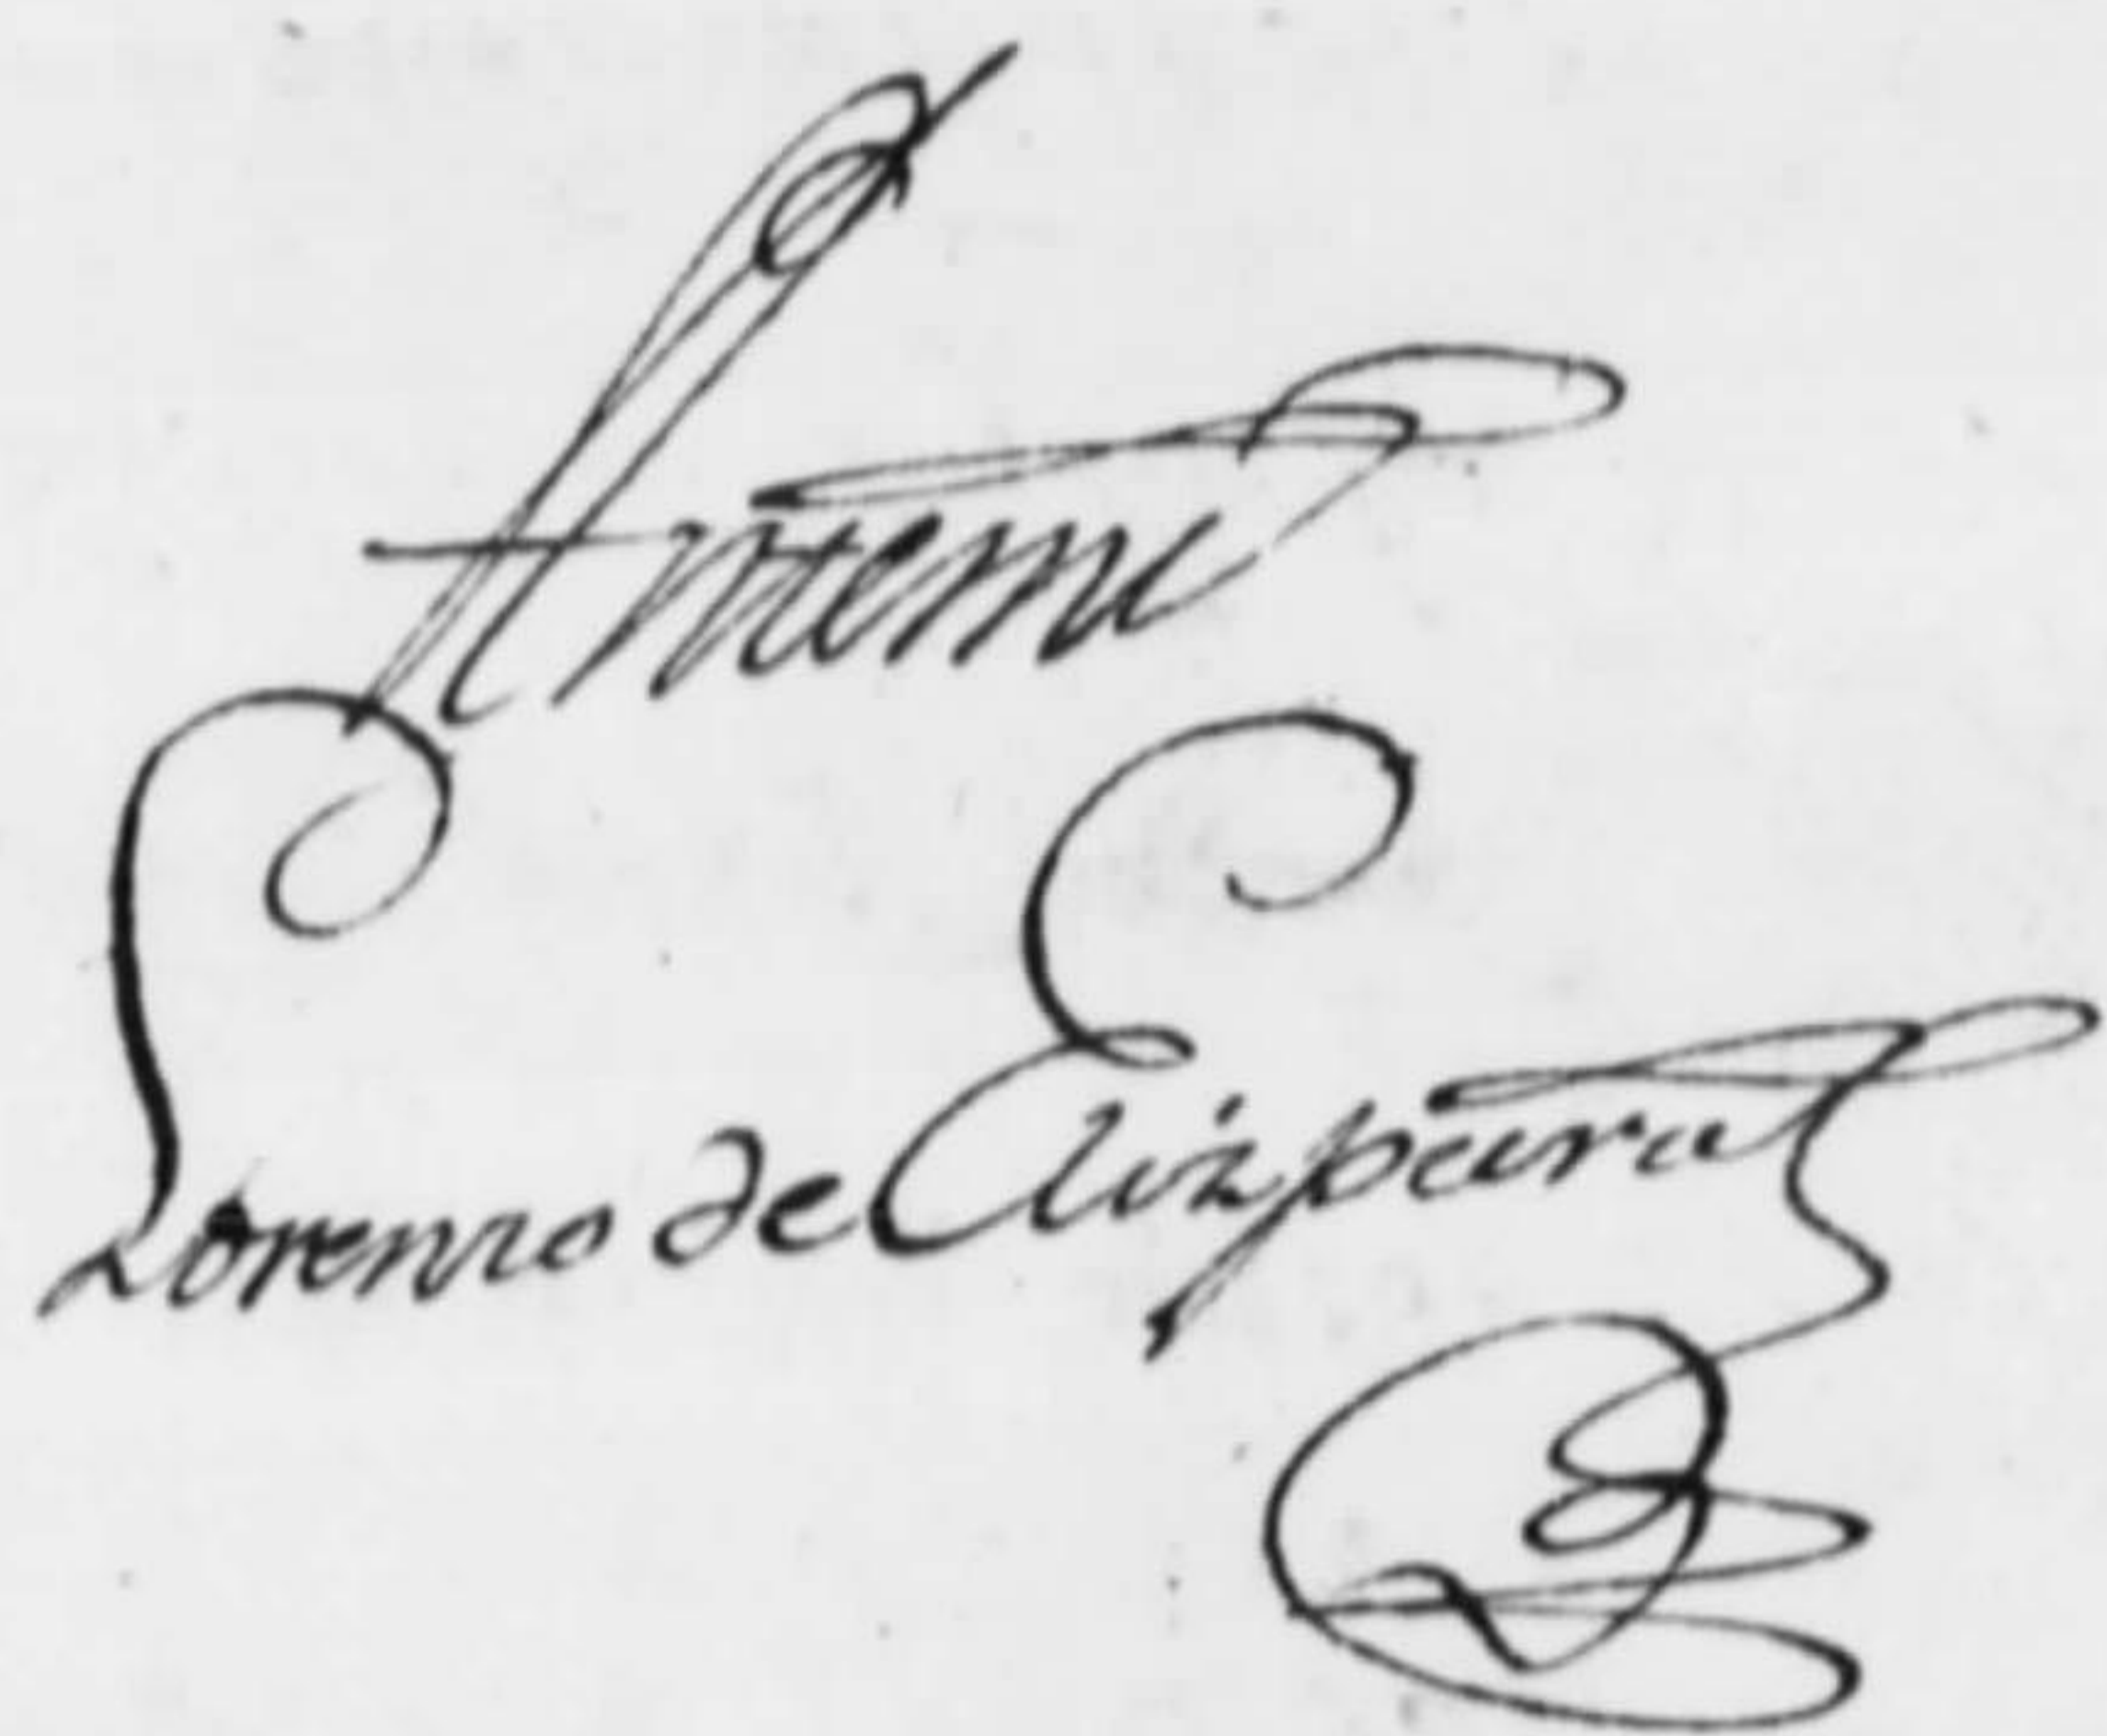 Ante mi
Lorenzo de Elizpuru